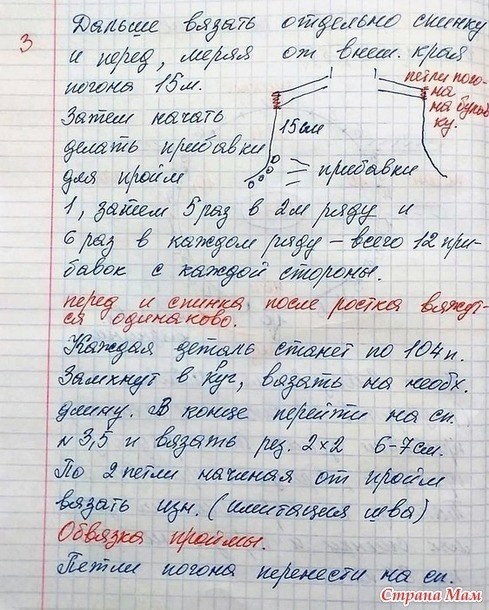 3
Дальше вязать отдельно спинку
и перед, меряя от внеш. края
погона 15м.
петли пого-
на
на булав
ку.
Затем начать
15 см
делать прибавки
для пройм
прибавки
1, затем 5 раз в 2м ряду и
6 раз в каждом ряду – всего 12 при-
бавок с каждой стороны.
перед и спинка после ростка вяжут-
ся одинаково.
Каждая деталь станет по 104 п.
Замкнут в круг, вязать на необх.
длину. В конце перейти на сп.
N 3,5 и вязать рез. 2×2 6-7см.
По 2 петли начиная от пройм
вязать изн. (имитация шва)
Обвязка проймы.
Петли погона перенести на сп.
Страна Мам